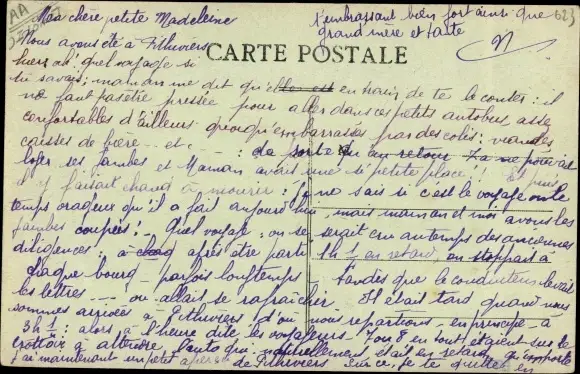 Ma chère petite Madeleine
Nous avons été à Pithiviers
hier, ah! quel voyage si
tu savais; maman me dit qu'elle est en train de te le conter: il
ne faut pas être pressée pour aller dans ces petits autobus assez
confortables d'ailleurs quoiqu'embarrassés par des colis: viandes,
caisses de bière... etc...: de sorte qu'au retour
loger ses jambes et Maman avait une si petite place! Et puis
il y faisait chaud à mourir: je ne sais si c'est le voyage ou le
temps orageux qu'il a fait aujourd'hui, mais maman et moi avons les
jambes coupées! Quel voyage: on se serait cru au temps des anciennes
diligences: après être partis 1h½ en retard, on stoppait à
chaque bourg - parfois longtemps tandis que le conducteur levait
les lettres... ou allait se rafraîchir. Il était tard quand nous
sommes arrivés à Pithiviers d'où nous repartions, en principe, à
3h½: alors à l'heure dite les voyageurs 7 ou 8 en tout, étaient sur le
trottoir à attendre l'auto qui, naturellement, était en retard
j'ai maintenant un petit aperçu de Pithiviers. Sur ce, je te quitte en
t'embrassant bien fort ainsi que
grand'mère et tante
CARTE POSTALE
AA
623